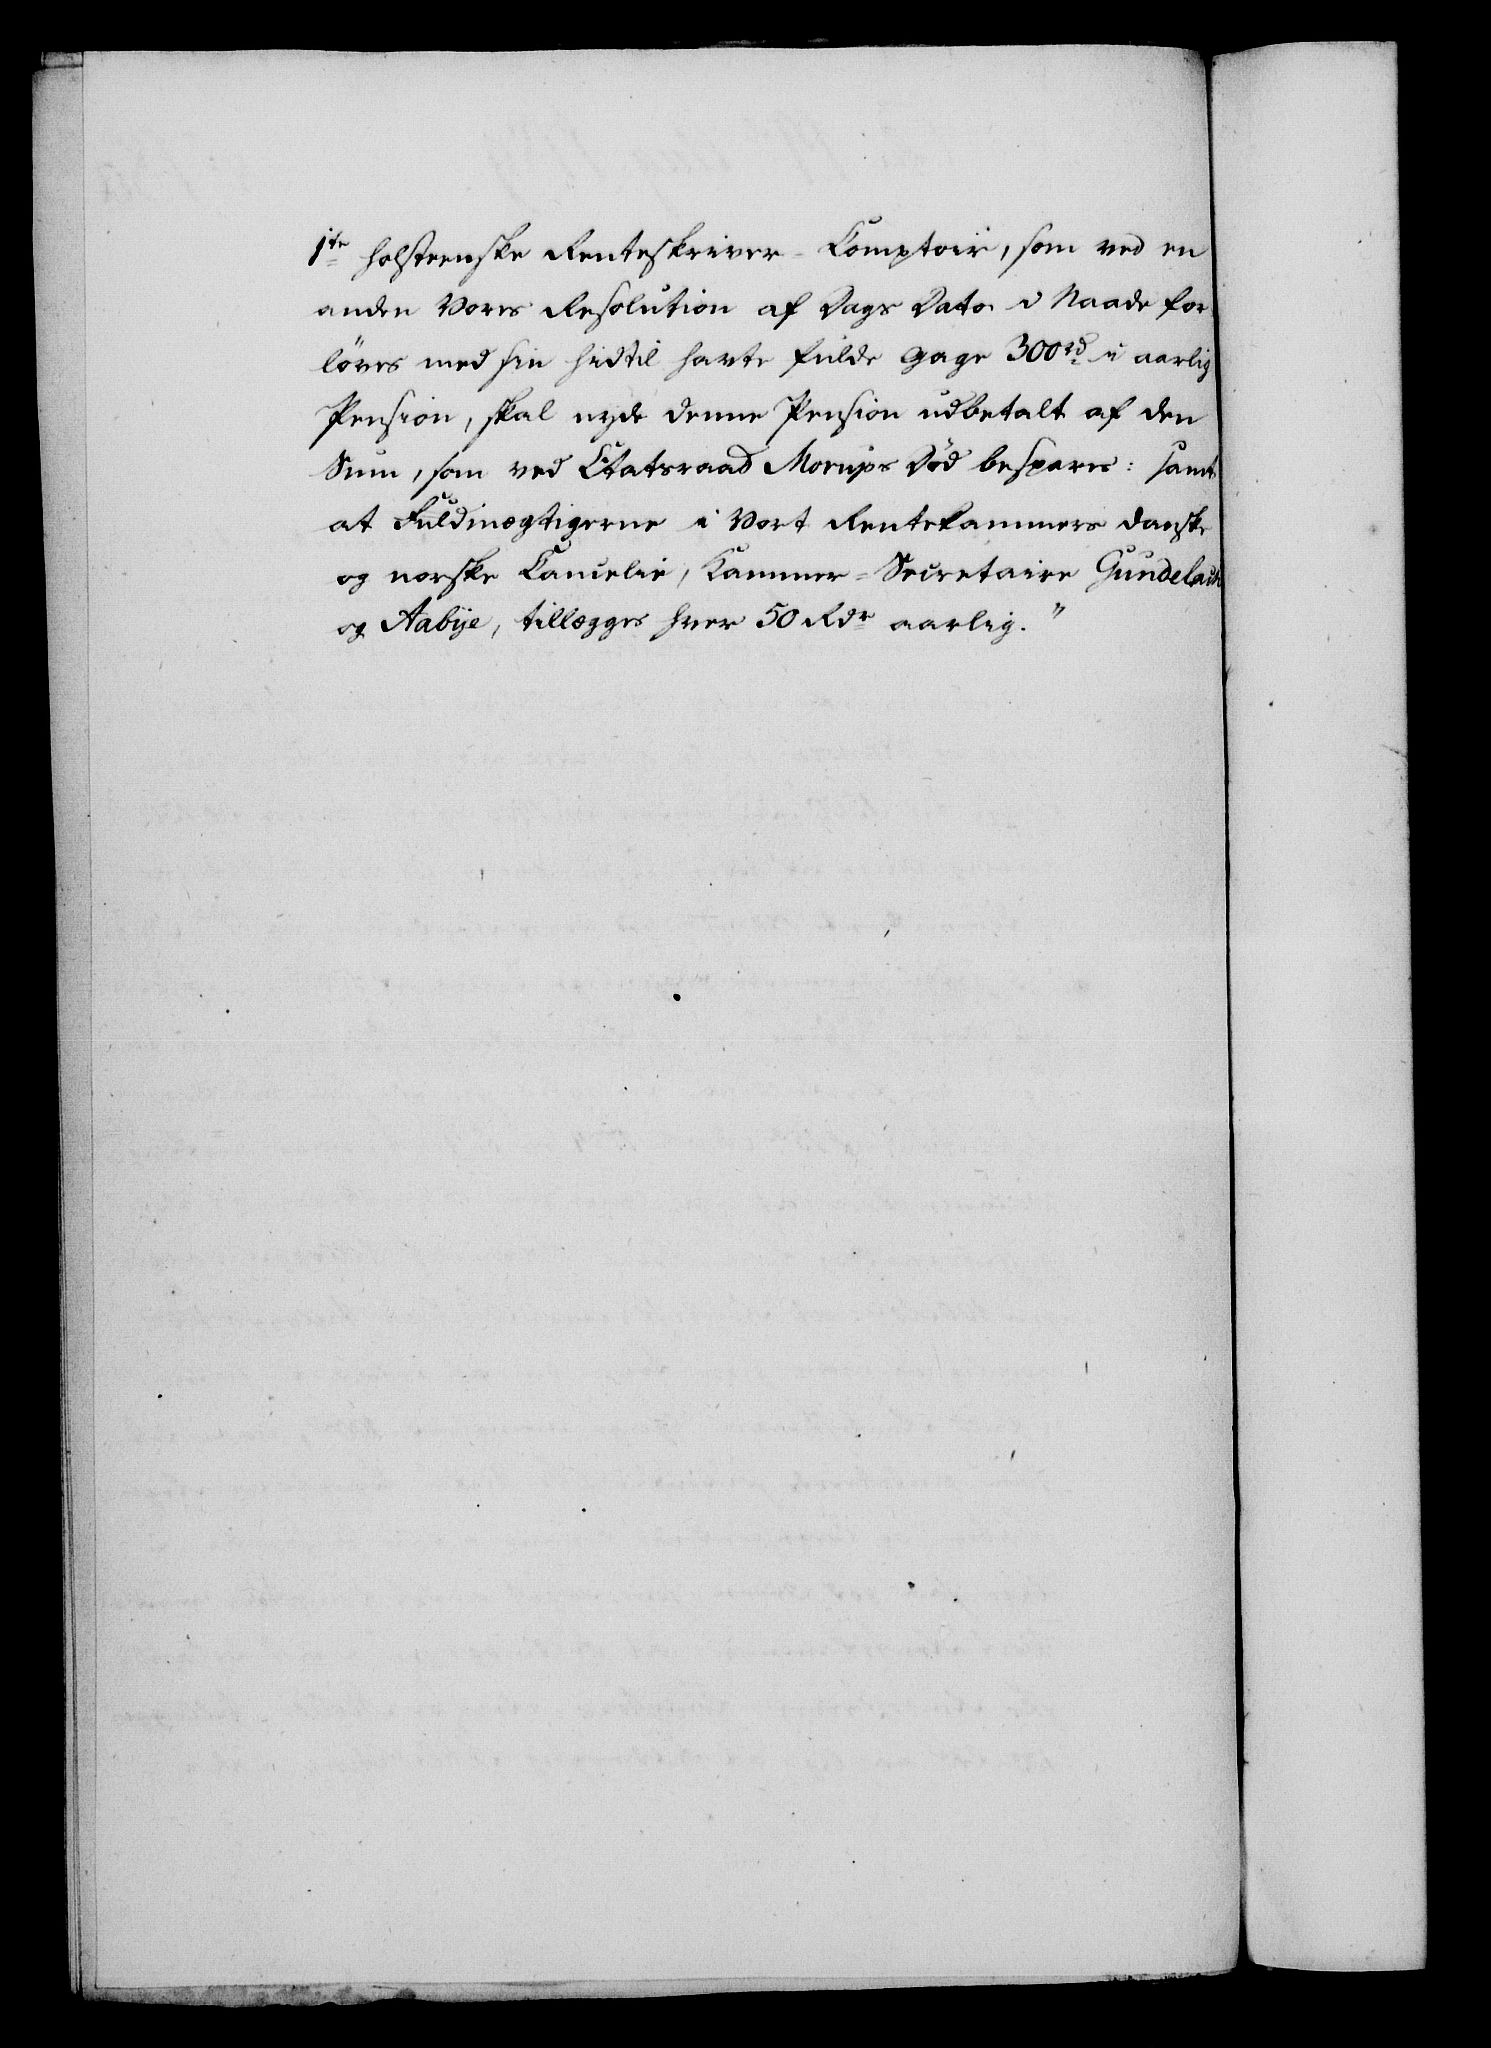 1te holsteenske Renteskriver-Comptoir, som ved en
anden Vores Resolution af Dags Dato i Naade for
löves med sin hidtil havte fulde Gage 300rd i aarlig
Pension, skal nyde denne Pension udbetalt af den
Sum, som ved Etatsraad Morups Död bespares: samt
at Fuldmægtigerne i Vort Rentekammers danske
og norske Cancelie, Kammer-Secretaire Gundelach
og Aabye, tillægges hver 50 Rdr aarlig."